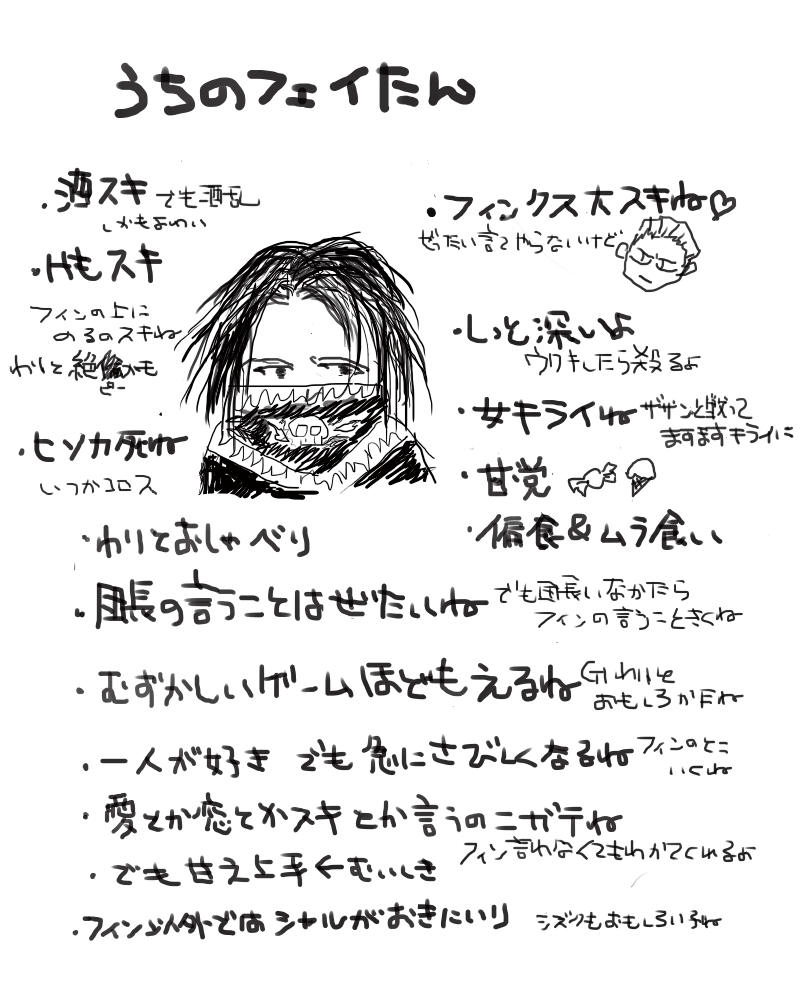 うちのフェイたん
・酒スキ でも酒乱
しかもよわい
・Hもスキ
フィンの上に
のるのスキね
わりと絶倫かも
ピー
・ヒソカ死ね
いつかコロス
・フィンクス大スキね♡
ぜったい言てやらないけど
・しっと深いよ
ウワキしたら殺るよ
・女キライね ザザンと戦って
ますますキライに
・甘党
・偏食&ムラ食い
・わりとおしゃべり
・団長の言うことはぜたいね でも団長いなかたら
フィンの言うこときくね
・むずかしいゲームほどもえるね GI わりと
おもしろかたね
・一人が好き でも急にさびしくなるね フィンのとこ
いくね
・愛とか恋とかスキとか言うのニガテね
フィン言わなくてもわかてくれるよ
・でも甘え上手←むいしき
・フィン以外ではシャルがおきにいり シズクもおもしろいね